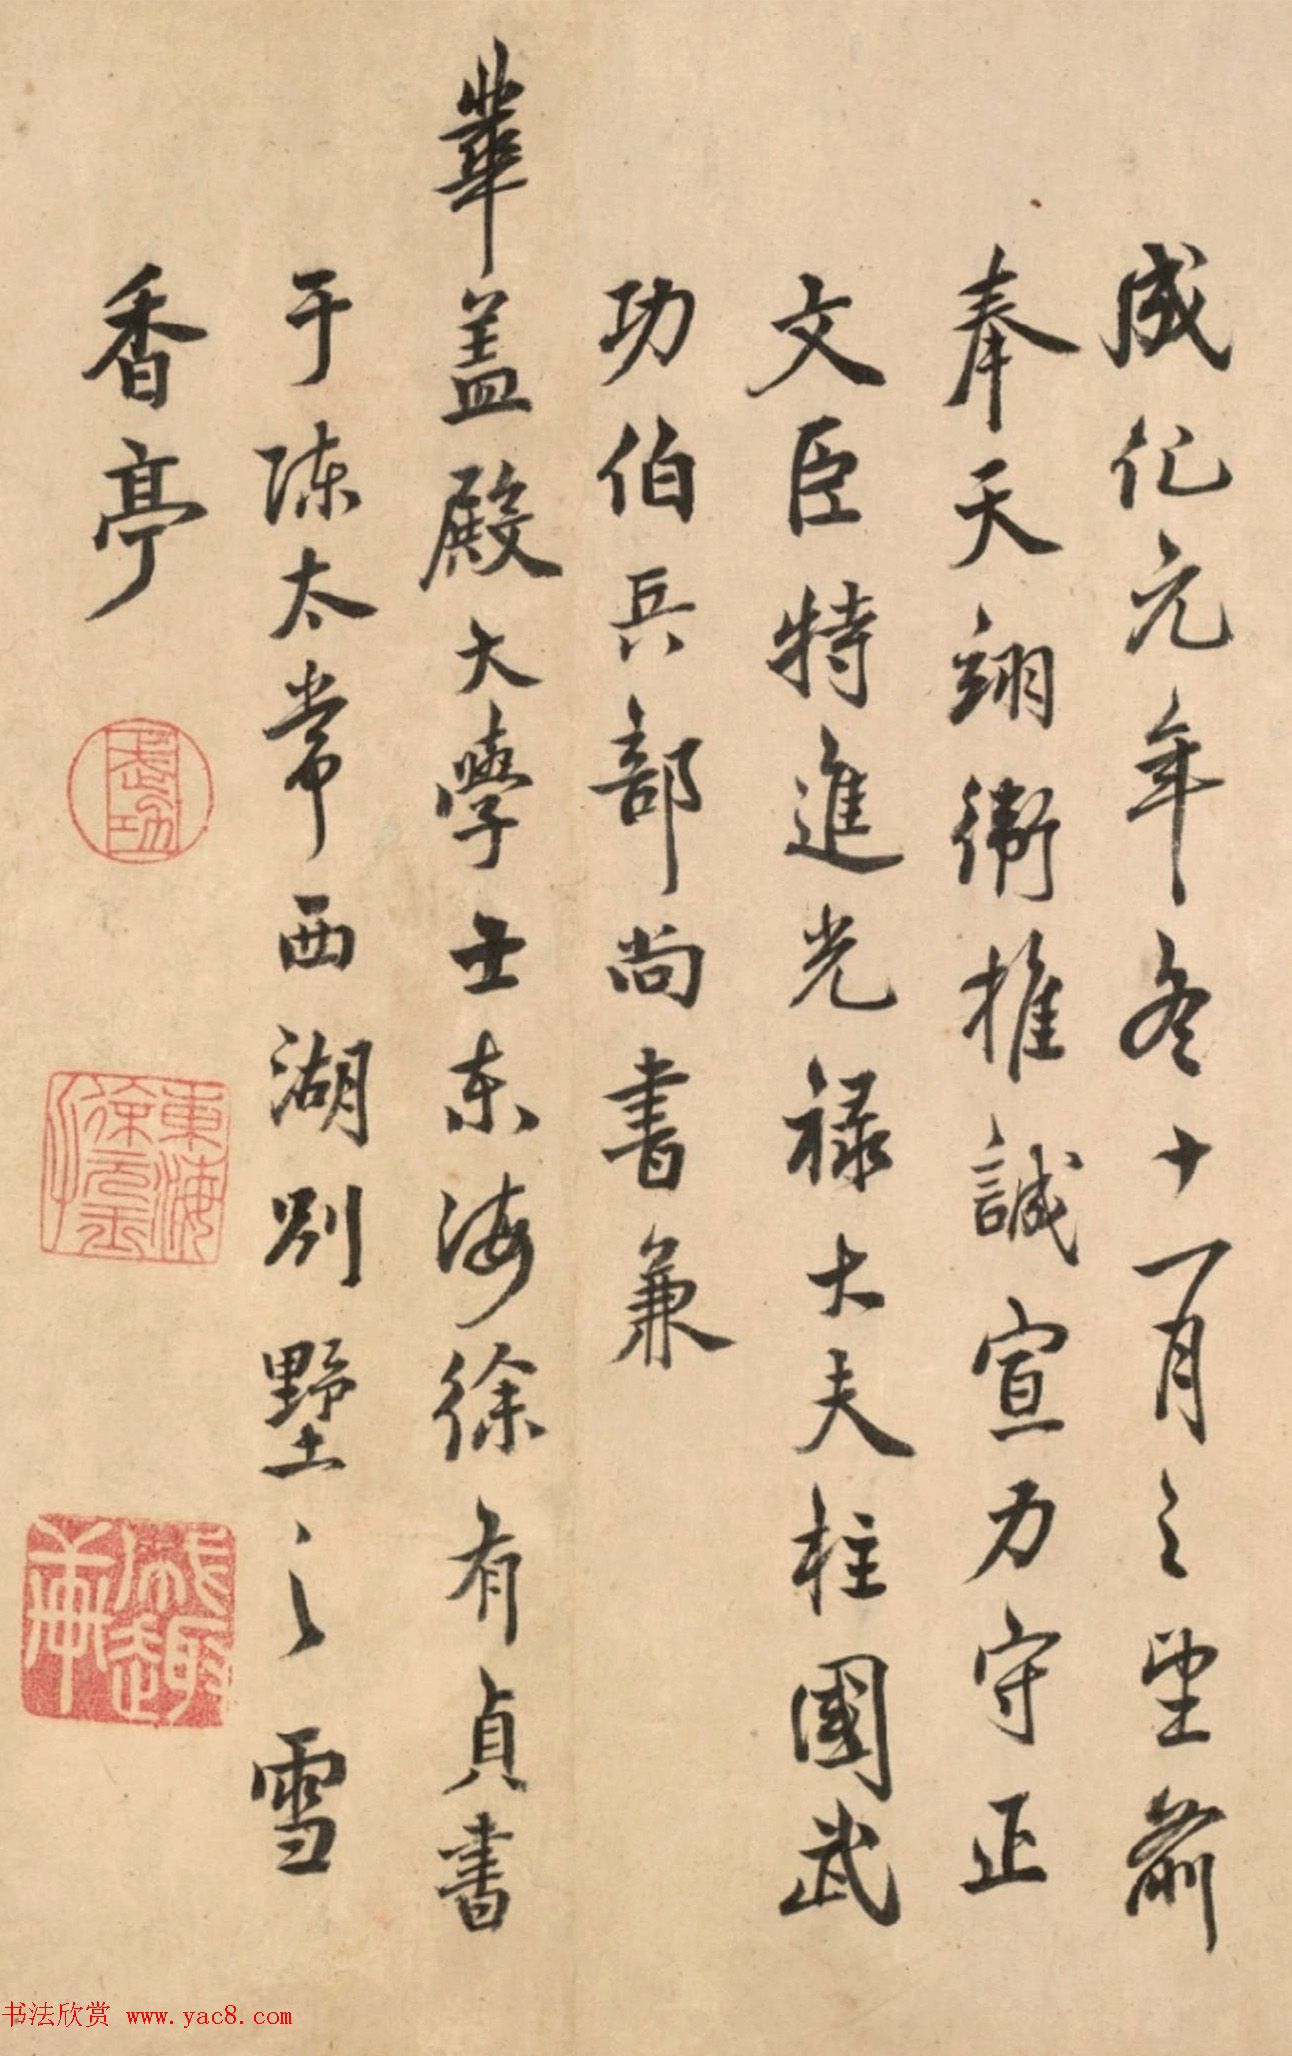 成化元年冬十一月之望前
奉天翊衛推誠宣力守正
文臣特進光禄大夫柱國武
功伯兵部尚書兼
華盖殿大學士東海徐有貞書
于陳太常西湖別墅之雪
香亭
武功
東海徐元玉
书法欣赏 www.yac8.com